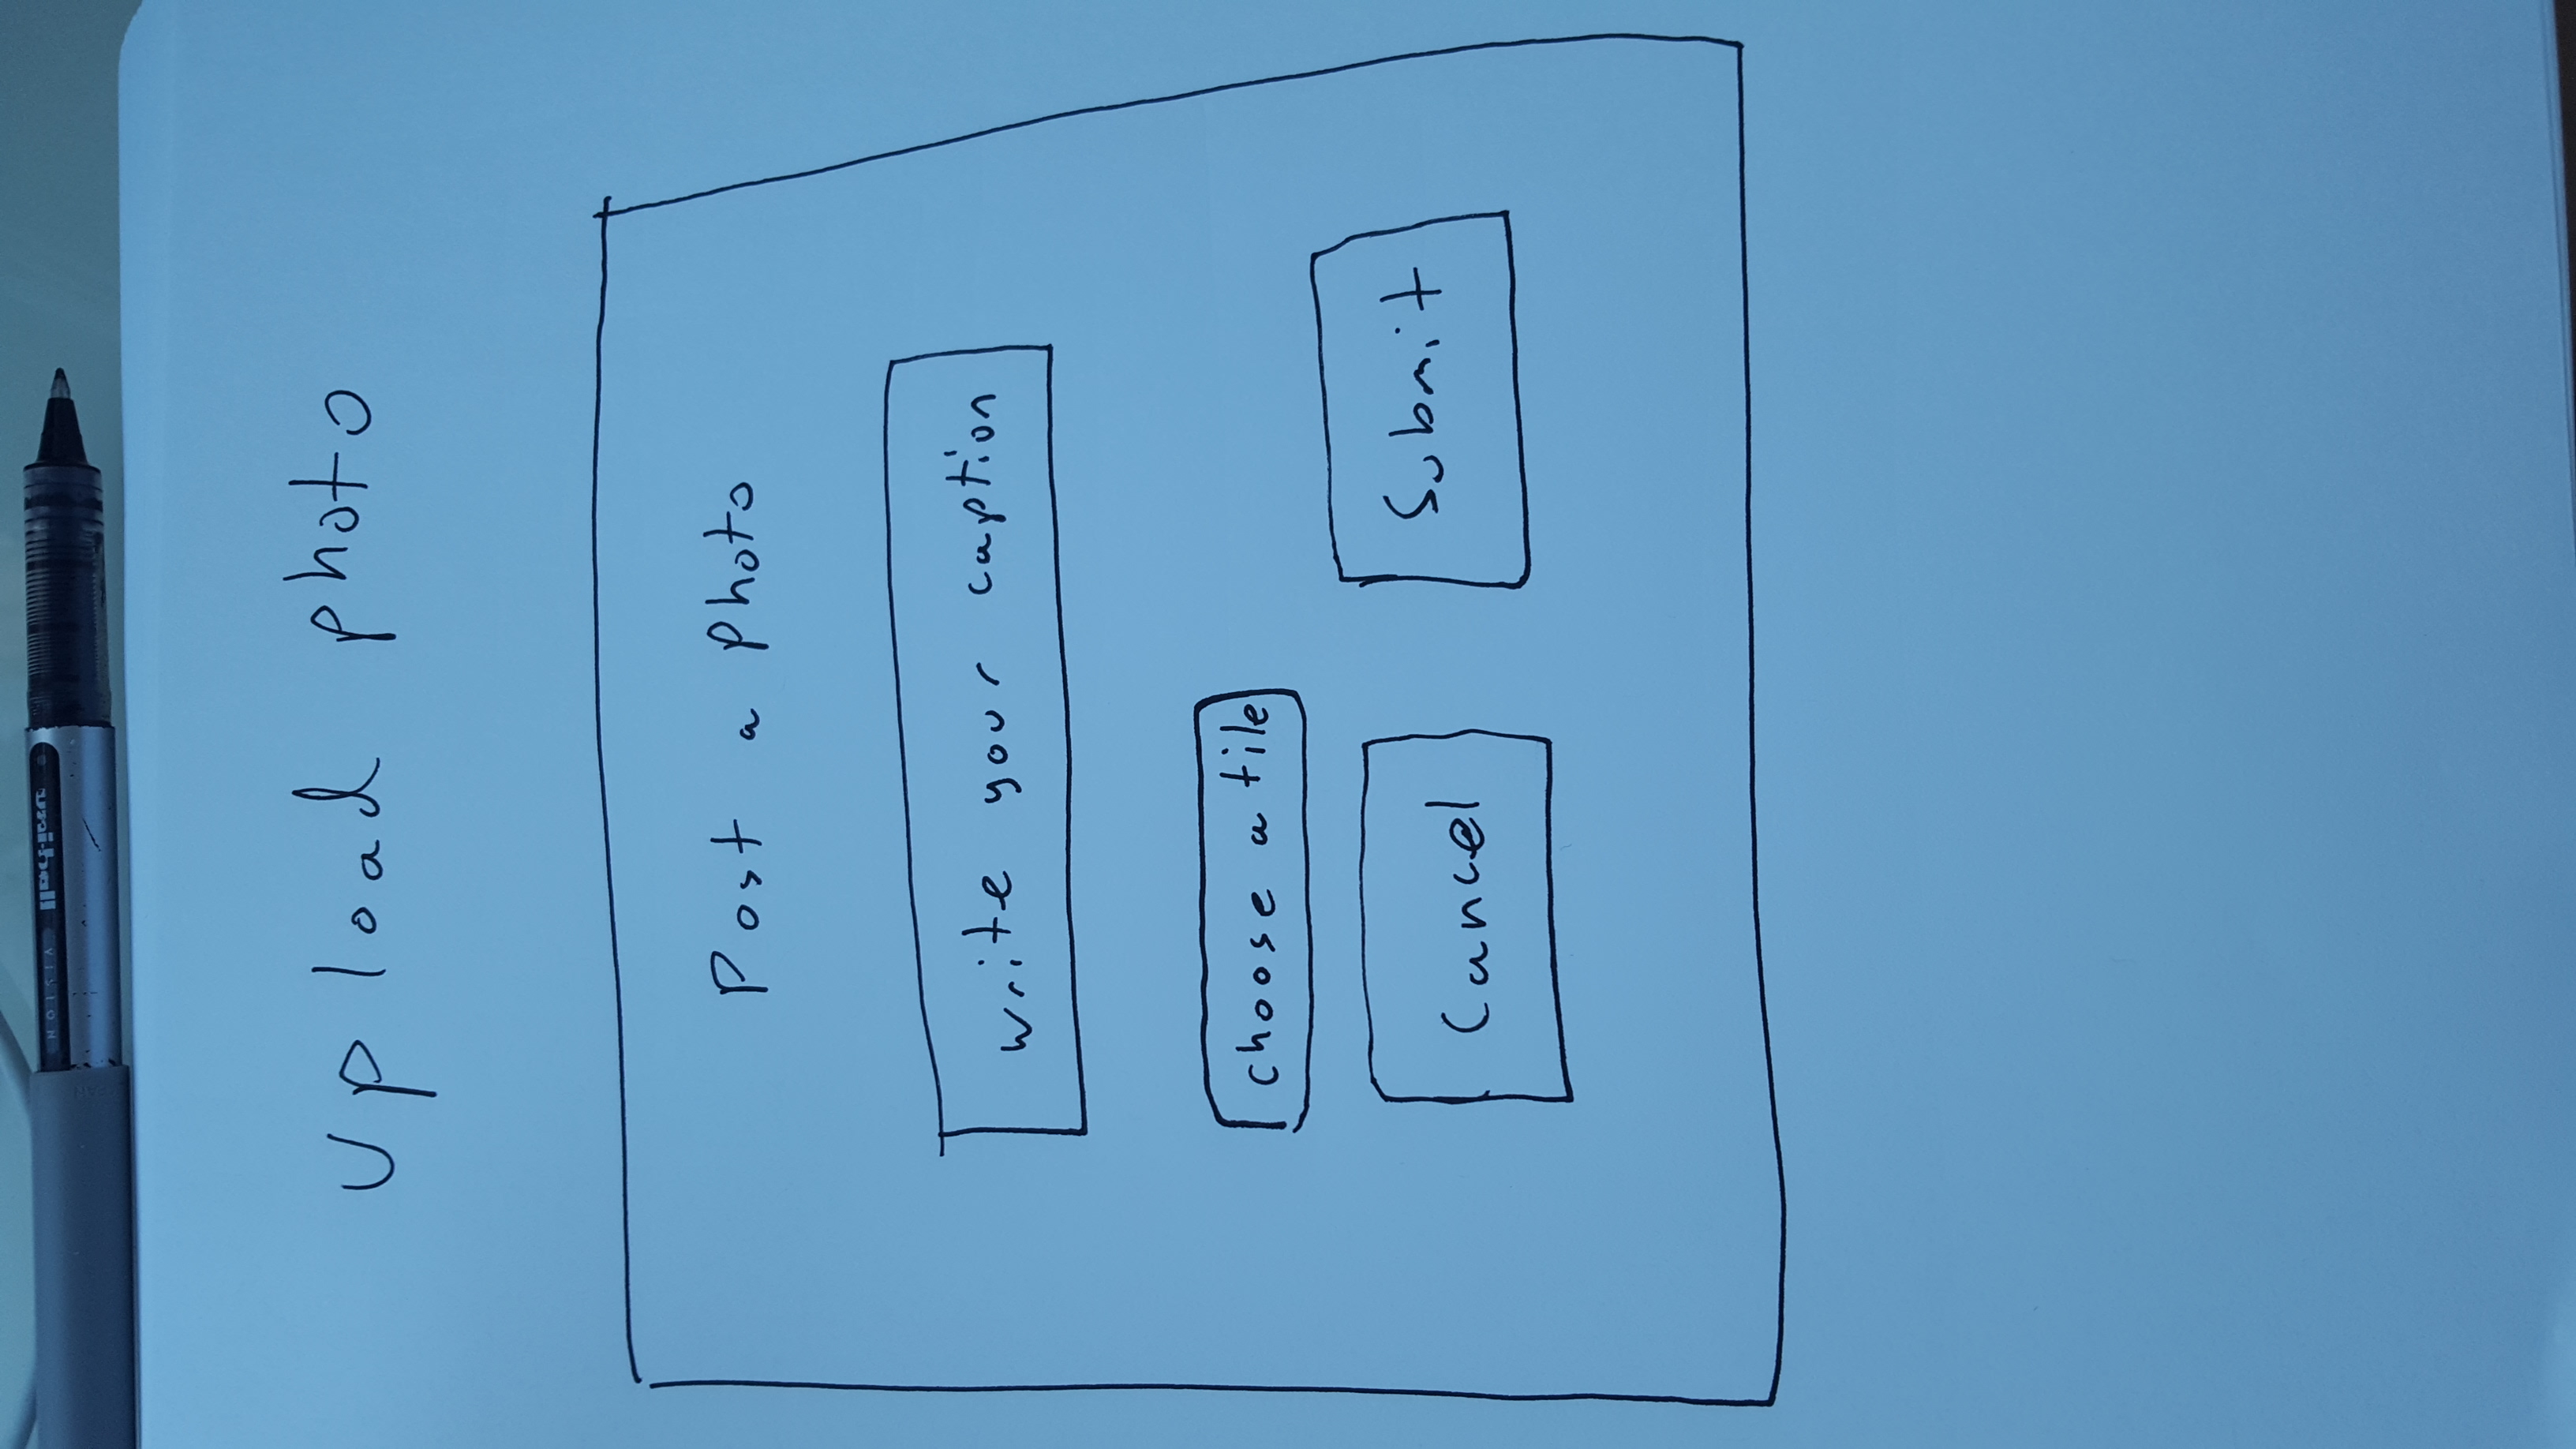 uni-ball
VISION
Upload photo
Post a photo
write your caption
choose a file
Cancel
Submit